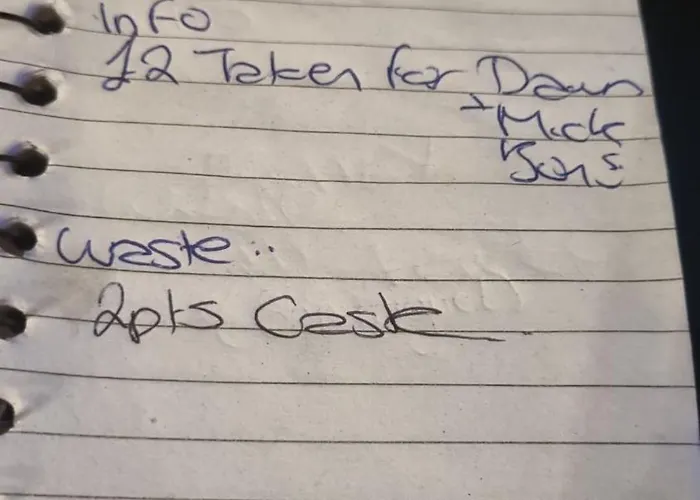 Info
£2 Taken for Dawn
+ Mick
Sons
Waste..
2pts Cask